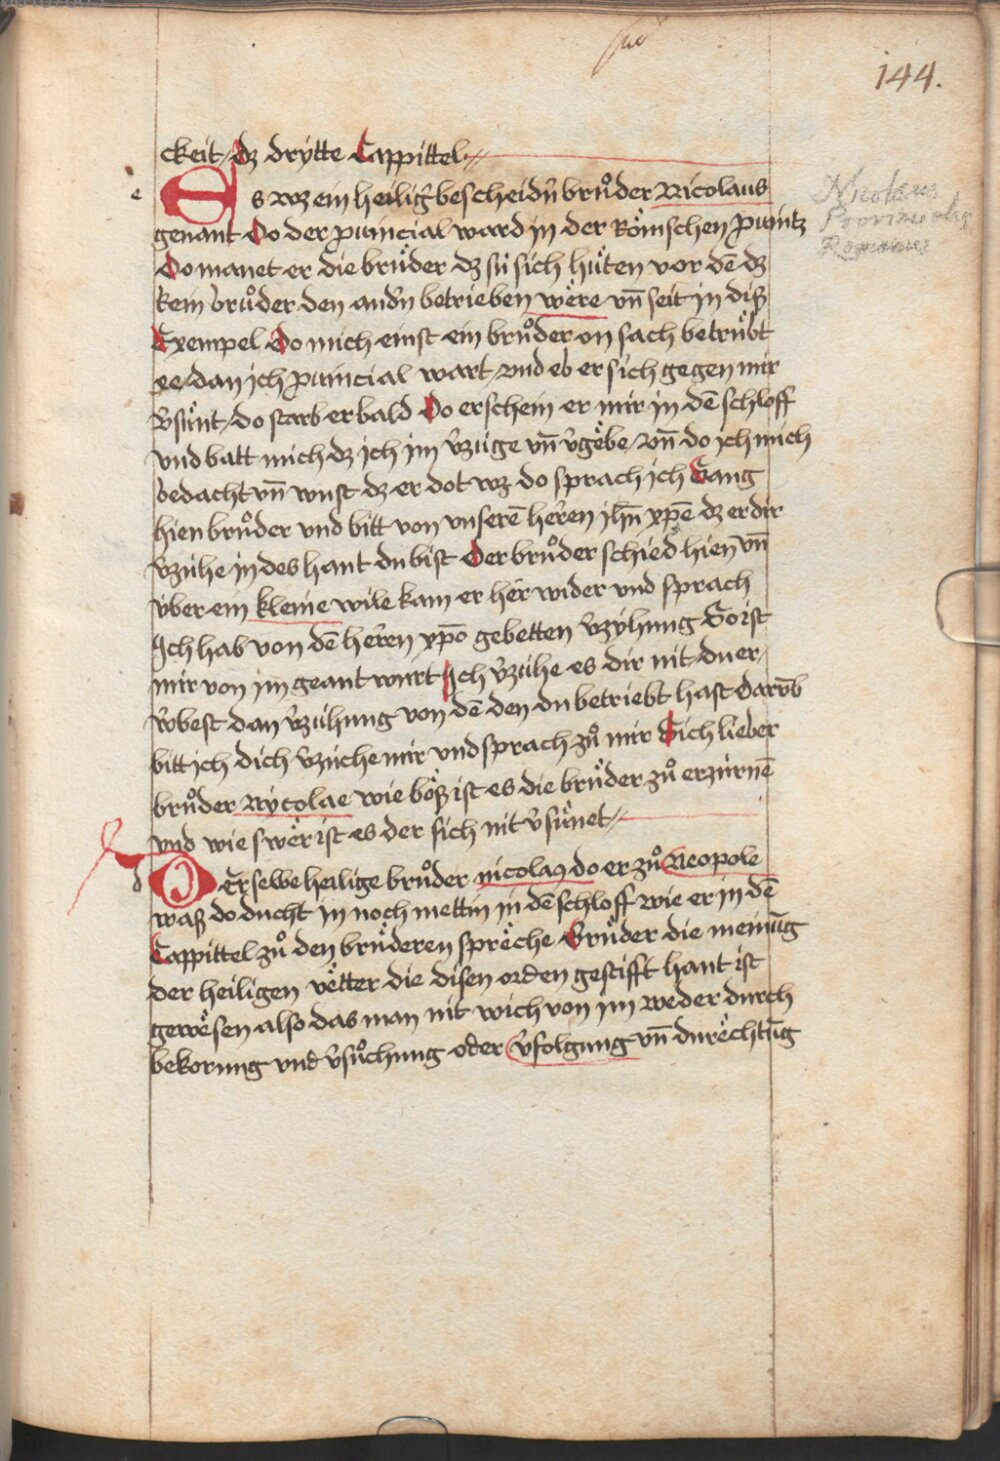 144.
ckeit / dz drÿtte Cappittel·//
e
Es wz ein heilig̾ bescheidn̄ brůder Nicolaus
genant Do der pꝛuincial ward in der Römschen pꝛuintz
Nicolaus
Provincialis
Romanus
Do manet er die brüder dz sü sich hüten vor dē dz
kein brůder den and̾n betrieben wëre vn̄ seit in diß
Exempel Do mich einst ein brůder on sach betrübt
ee dan ich pꝛuincial wart / vnd eb er sich gegen mir
v̾sünt / do starb er bald Do erschein er mir in dē schloff
vnd batt mich dz ich im v̾züge vn̄ v̾gëbe / vn̄ do ich mich
bedacht vn̄ wust dz er dot wz do sprach ich Gang
hien brůder vnd bitt von vnserē heren jhū xp̄ē dz er dir
v̾zühe in des hant du bist Der brůder schied hien vn̄
über ein kleine wile kam er her wider vnd sprach
Ich hab von dē heren xp̄o gebetten v̾zÿhung Do ist
mir von im geantwurt Ich v̾zühe es dir nit du er,
w̾best dan v̾zühung von dē den du betriebt hast Darūb
bitt ich dich v̾züche mir vnd sprach zů mir Sich lieber
brůder Nÿcolae wie böß ist es die brüder zů erzürnē
vnd wie swër ist es der sich nit v̾sünet //
d
DEr selbe heilige brůder nicolaꝯ do er zů Neopole
waß do ducht in noch mettin in dē schloff wie er in dē
Cappittel zů den brüderen sprëche Brüder die meinūg
der heiligen vëtter die disen orden gestifft hant ist
gewësen also das man nit wich von im weder durch
bekorung vnd v̾sůchung oder v̾folgung vn̄ durëchtūg